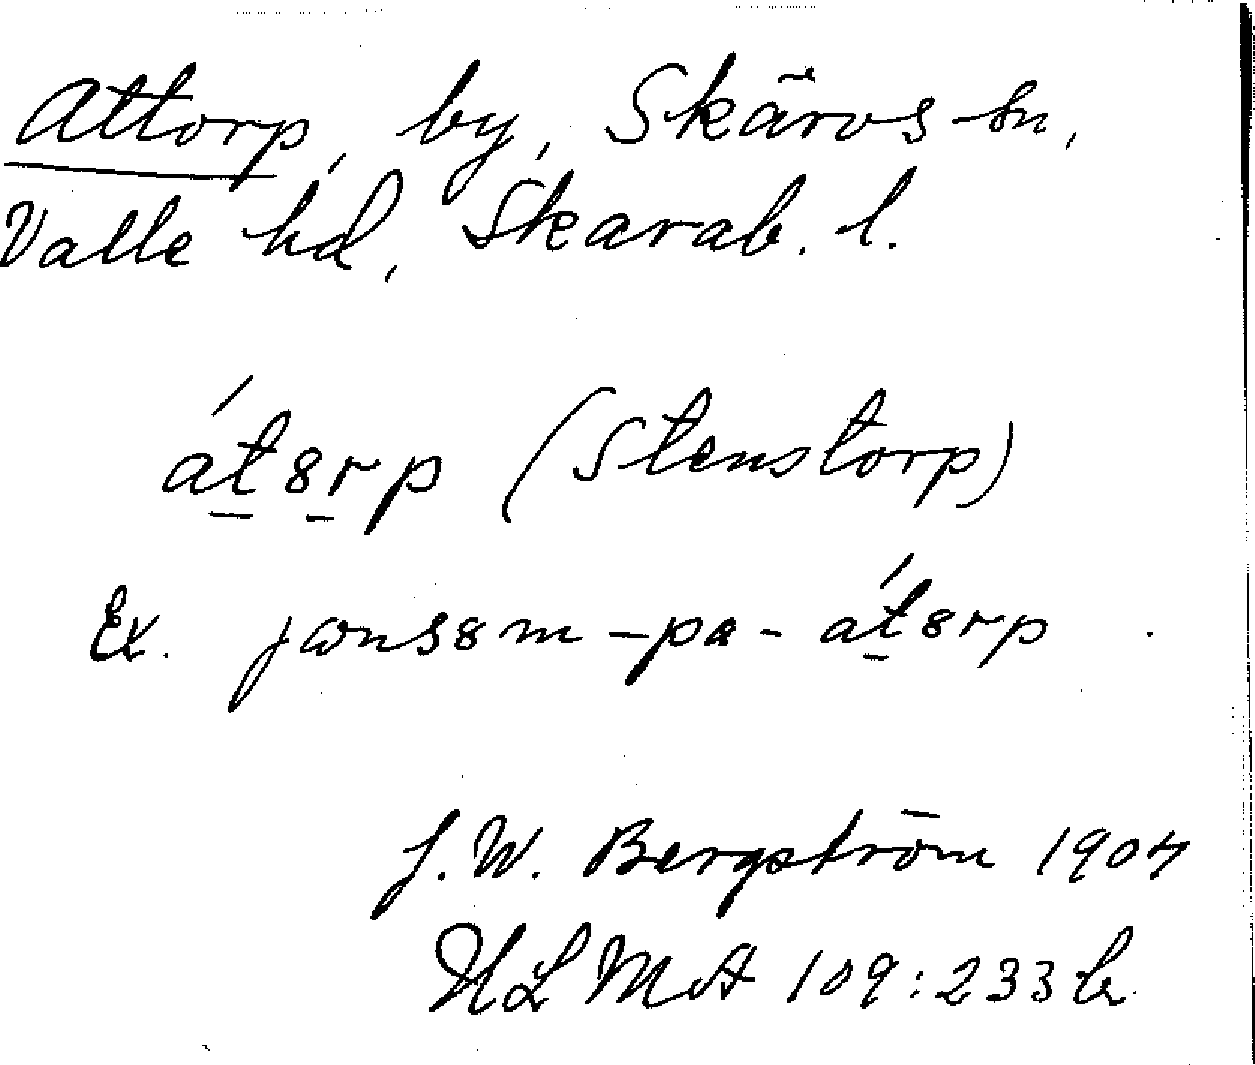 Attorp, by, Skärvs sn,
Valle hd, Skarab. l.
át8rp (Stenstorp)
Ex. jans8m-pa-át8rp
J. W. Bergström 1904
ULMA 109:233 b